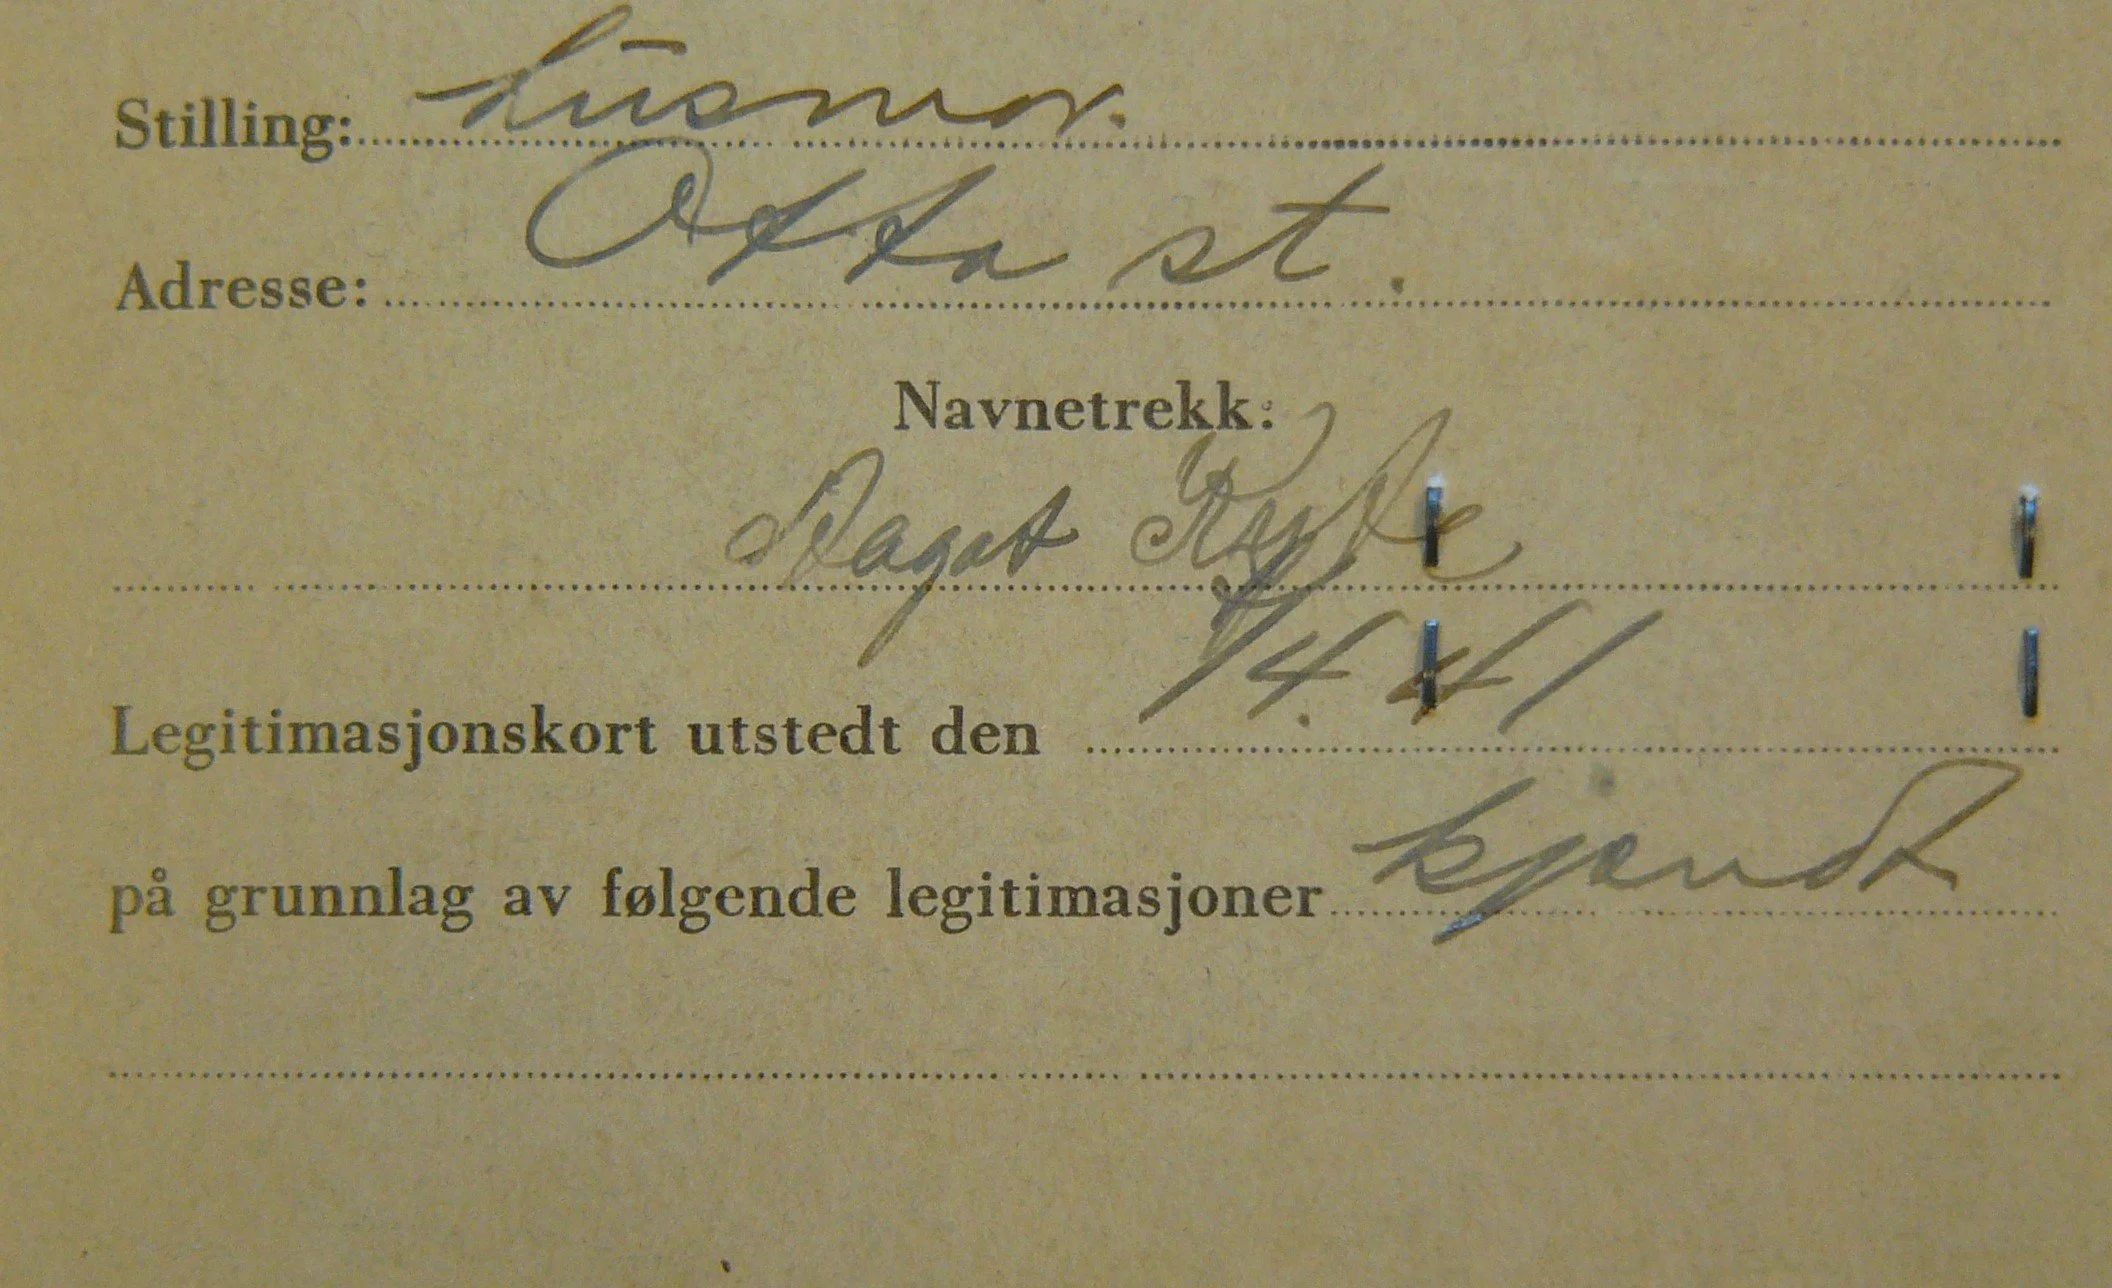 Stilling: husmor.
Adresse: Otta st.
Navnetrekk:
Magot
Legitimasjonskort utstedt den /4. 41
på grunnlag av følgende legitimasjoner kjendt